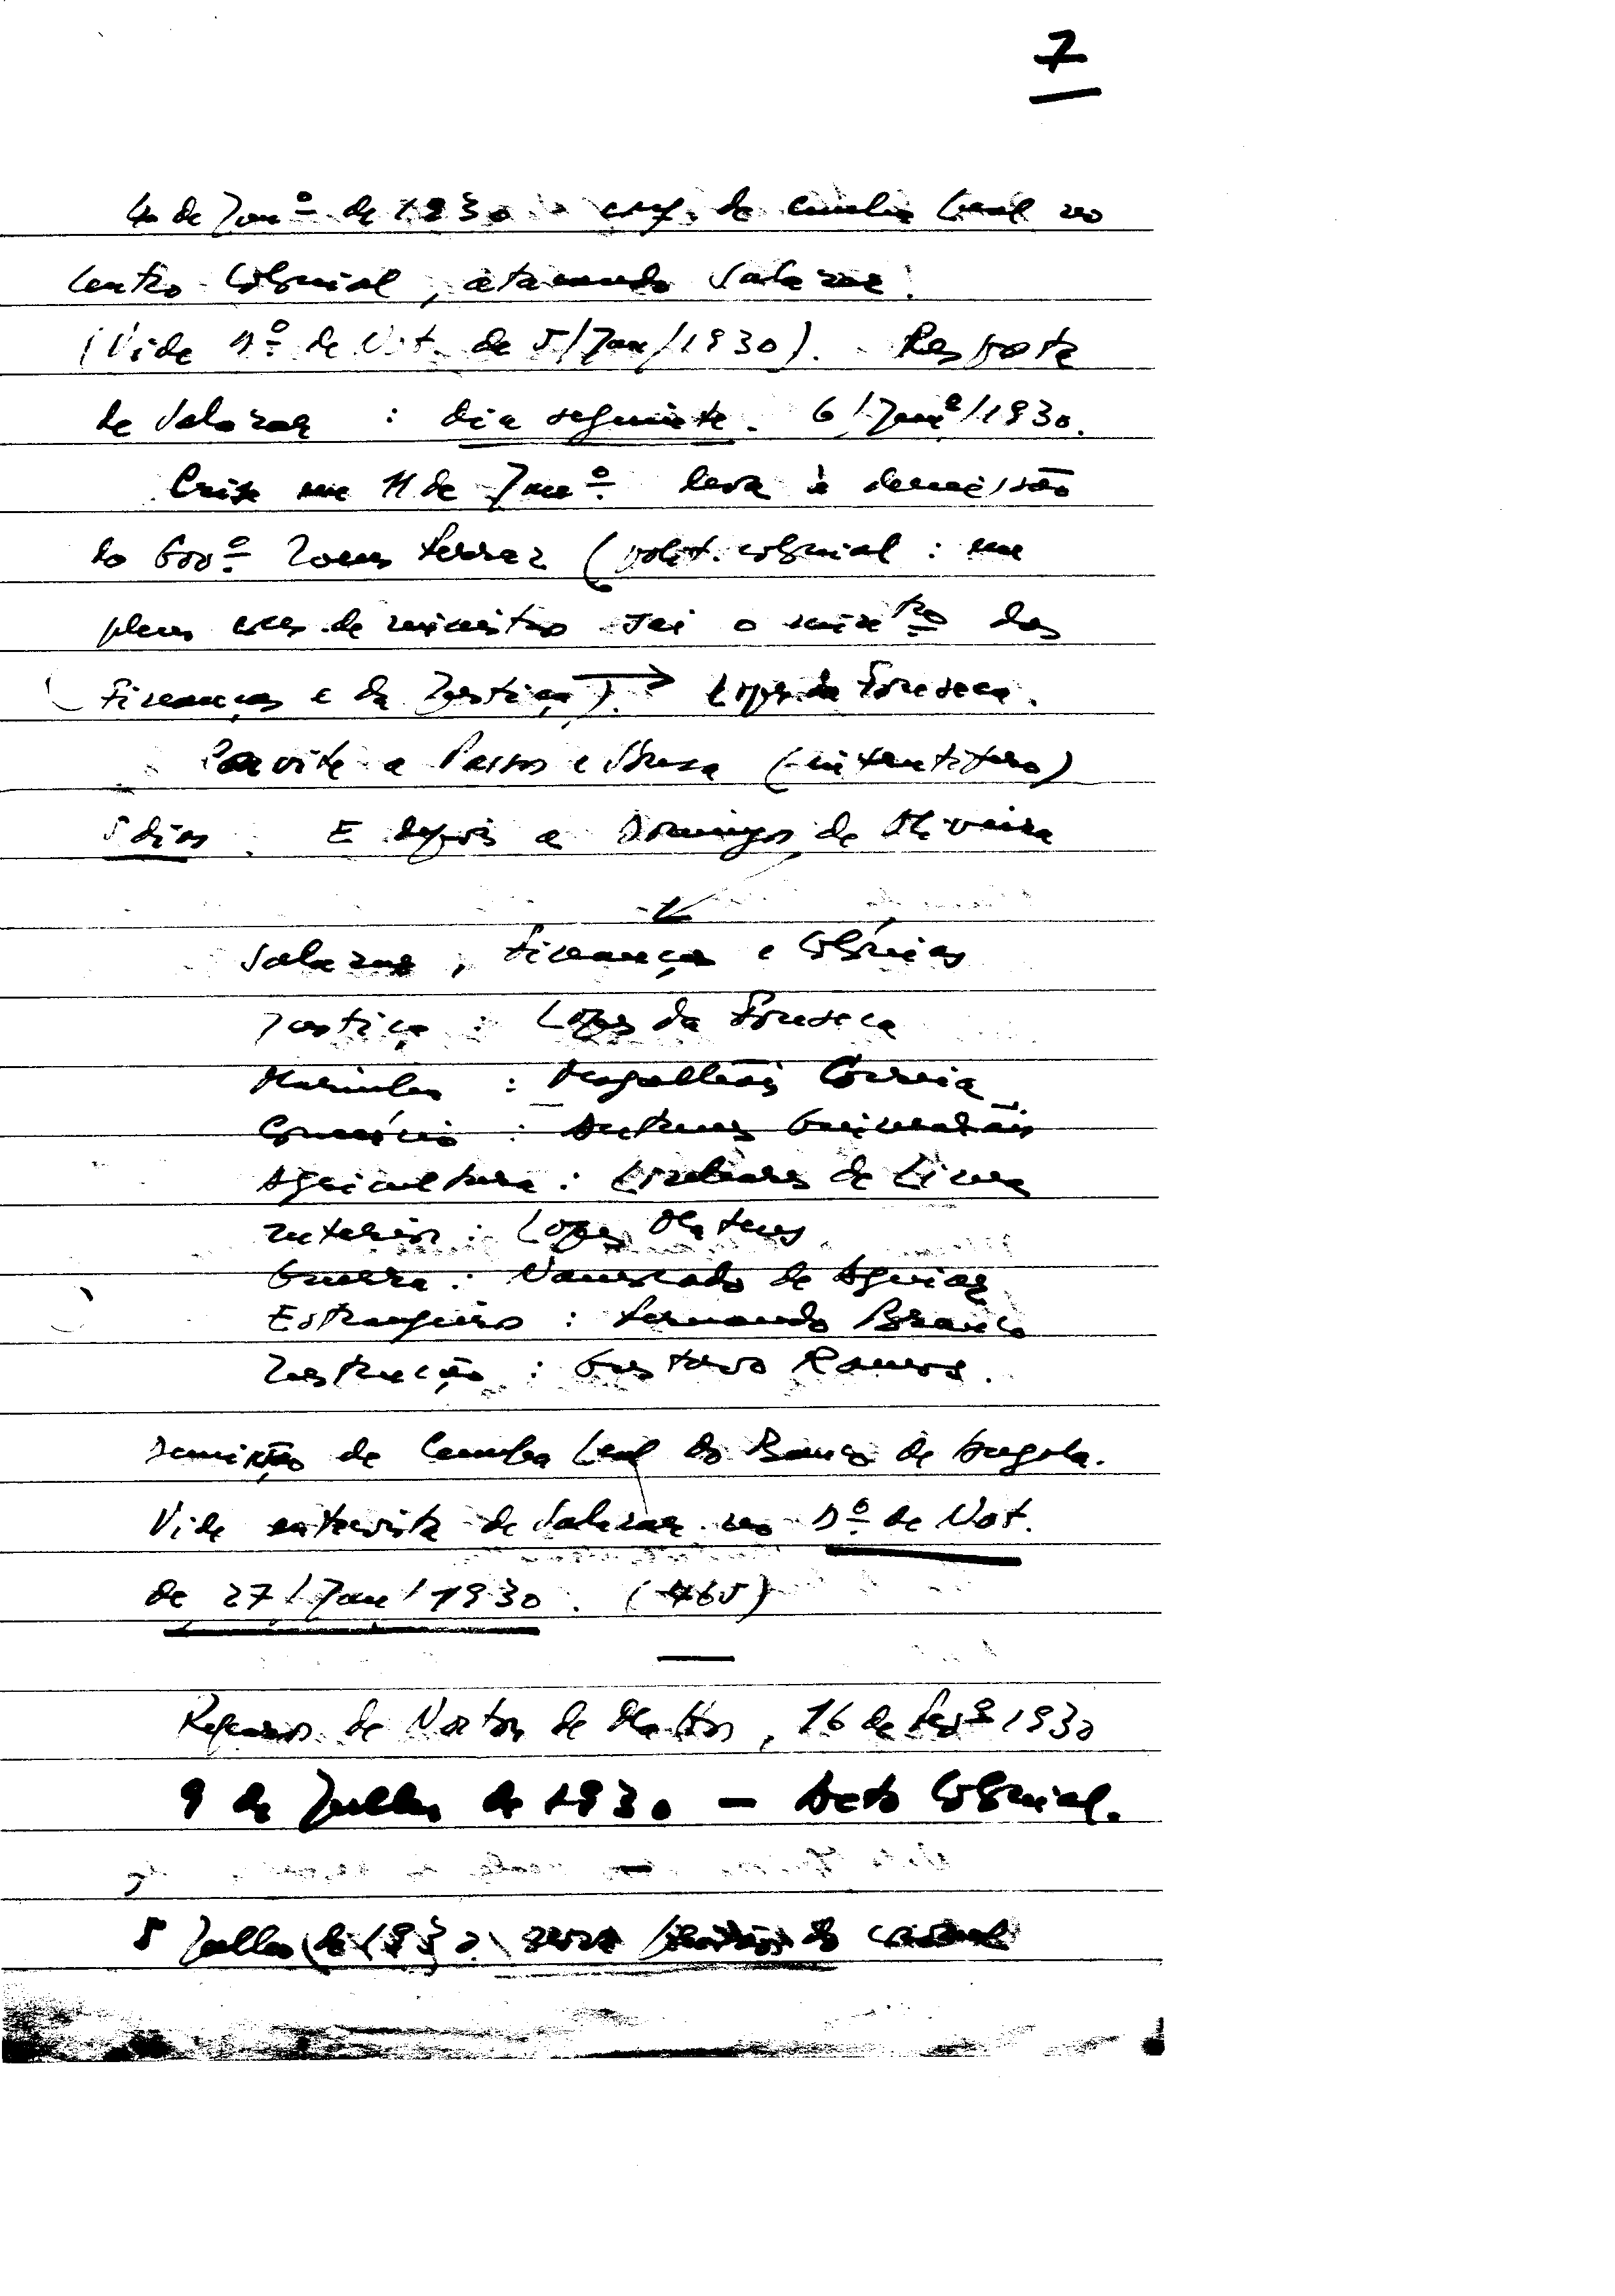 7
4 de Janº de 1930 - conf. de Cunha Leal no
Centro Colonial, atacando Salazar.
(Vide Dº de Not. de 5/Jan/1930). Resposta
de Salazar : dia seguinte. 6/Janº/1930.
Crise em 11 de Janº leva à demissão
do Govº Ivens Ferraz (polit. colonial : em
pleno cons. de ministros sai o minisTRO das
Finanças e da Justiça) → Lopes da Fonseca.
Convite a Passos e Sousa (infrutífero)
5 dias. E depois a Domingos de Oliveira
Salazar, Finanças e Colónias
Justiça : Lopes da Fonseca
Marinha : Magalhães Correia
Comércio : Antunes Guimarães
Agricultura : Linhares de Lima
Interior : Lopes Mateus
Guerra : Namorado de Aguiar
Estrangeiros : Fernando Branco
Instrução : Gustavo Ramos.
Demissão de Cunha Leal do Banco de Angola.
Vide entrevista de Salazar no Dº de Not.
de 27/Jan/1930. (465)
de Norton de Mattos, 16 de Fevº 1930
9 de Julho de 1930 - Acto Colonial.
5 Julho de 1932